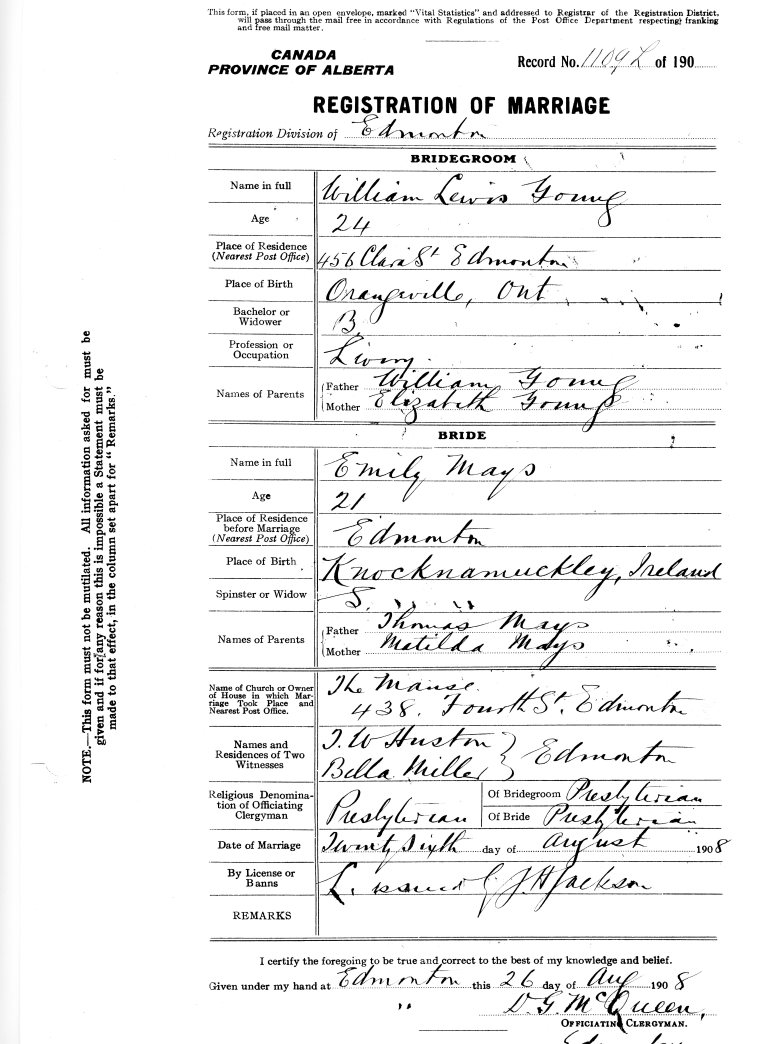 This form, if placed in an open envelope, marked "Vital Statistics" and addressed to Registrar of the Registration District,
will pass through the mail free in accordance with Regulations of the Post Office Department respecting franking
and free mail matter.
CANADA
PROVINCE OF ALBERTA
Record No. 1109 L of 190
REGISTRATION OF MARRIAGE
Registration Division of Edmonton
BRIDEGROOM
Name in full William Lewis Young
Age 24
Place of Residence
(Nearest Post Office) 456 Clara St Edmonton
Place of Birth Orangeville, Ont
Bachelor or
Widower B
Profession or
Occupation Livery
Names of Parents
Father William Young
Mother Elizabeth Young
BRIDE
Name in full Emily Mays
Age 21
Place of Residence
before Marriage
(Nearest Post Office) Edmonton
Place of Birth Knocknamuckley, Ireland
Spinster or Widow S.
Names of Parents
Father Thomas Mays
Mother Matilda Mays
Name of Church or Owner
of House in which Mar-
riage Took Place and
Nearest Post Office.
The Manse
438. Fourth St. Edmonton
Names and
Residences of Two
Witnesses
J. W Huston
Bella Miller } Edmonton
Religious Denomina-
tion of Officiating
Clergyman
Presbyterian
Of Bridegroom Presbyterian
Of Bride Presbyterian
Date of Marriage Twenty Sixth day of August 1908
By License or
Banns L. issued J H Jackson
REMARKS
I certify the foregoing to be true and correct to the best of my knowledge and belief.
Given under my hand at Edmonton this 26 day of Aug 1908
D. G. McQueen,
OFFICIATING CLERGYMAN.
NOTE.—This form must not be mutilated. All information asked for must be
given and if for any reason this is impossible a Statement must be
made to that effect, in the column set apart for "Remarks."